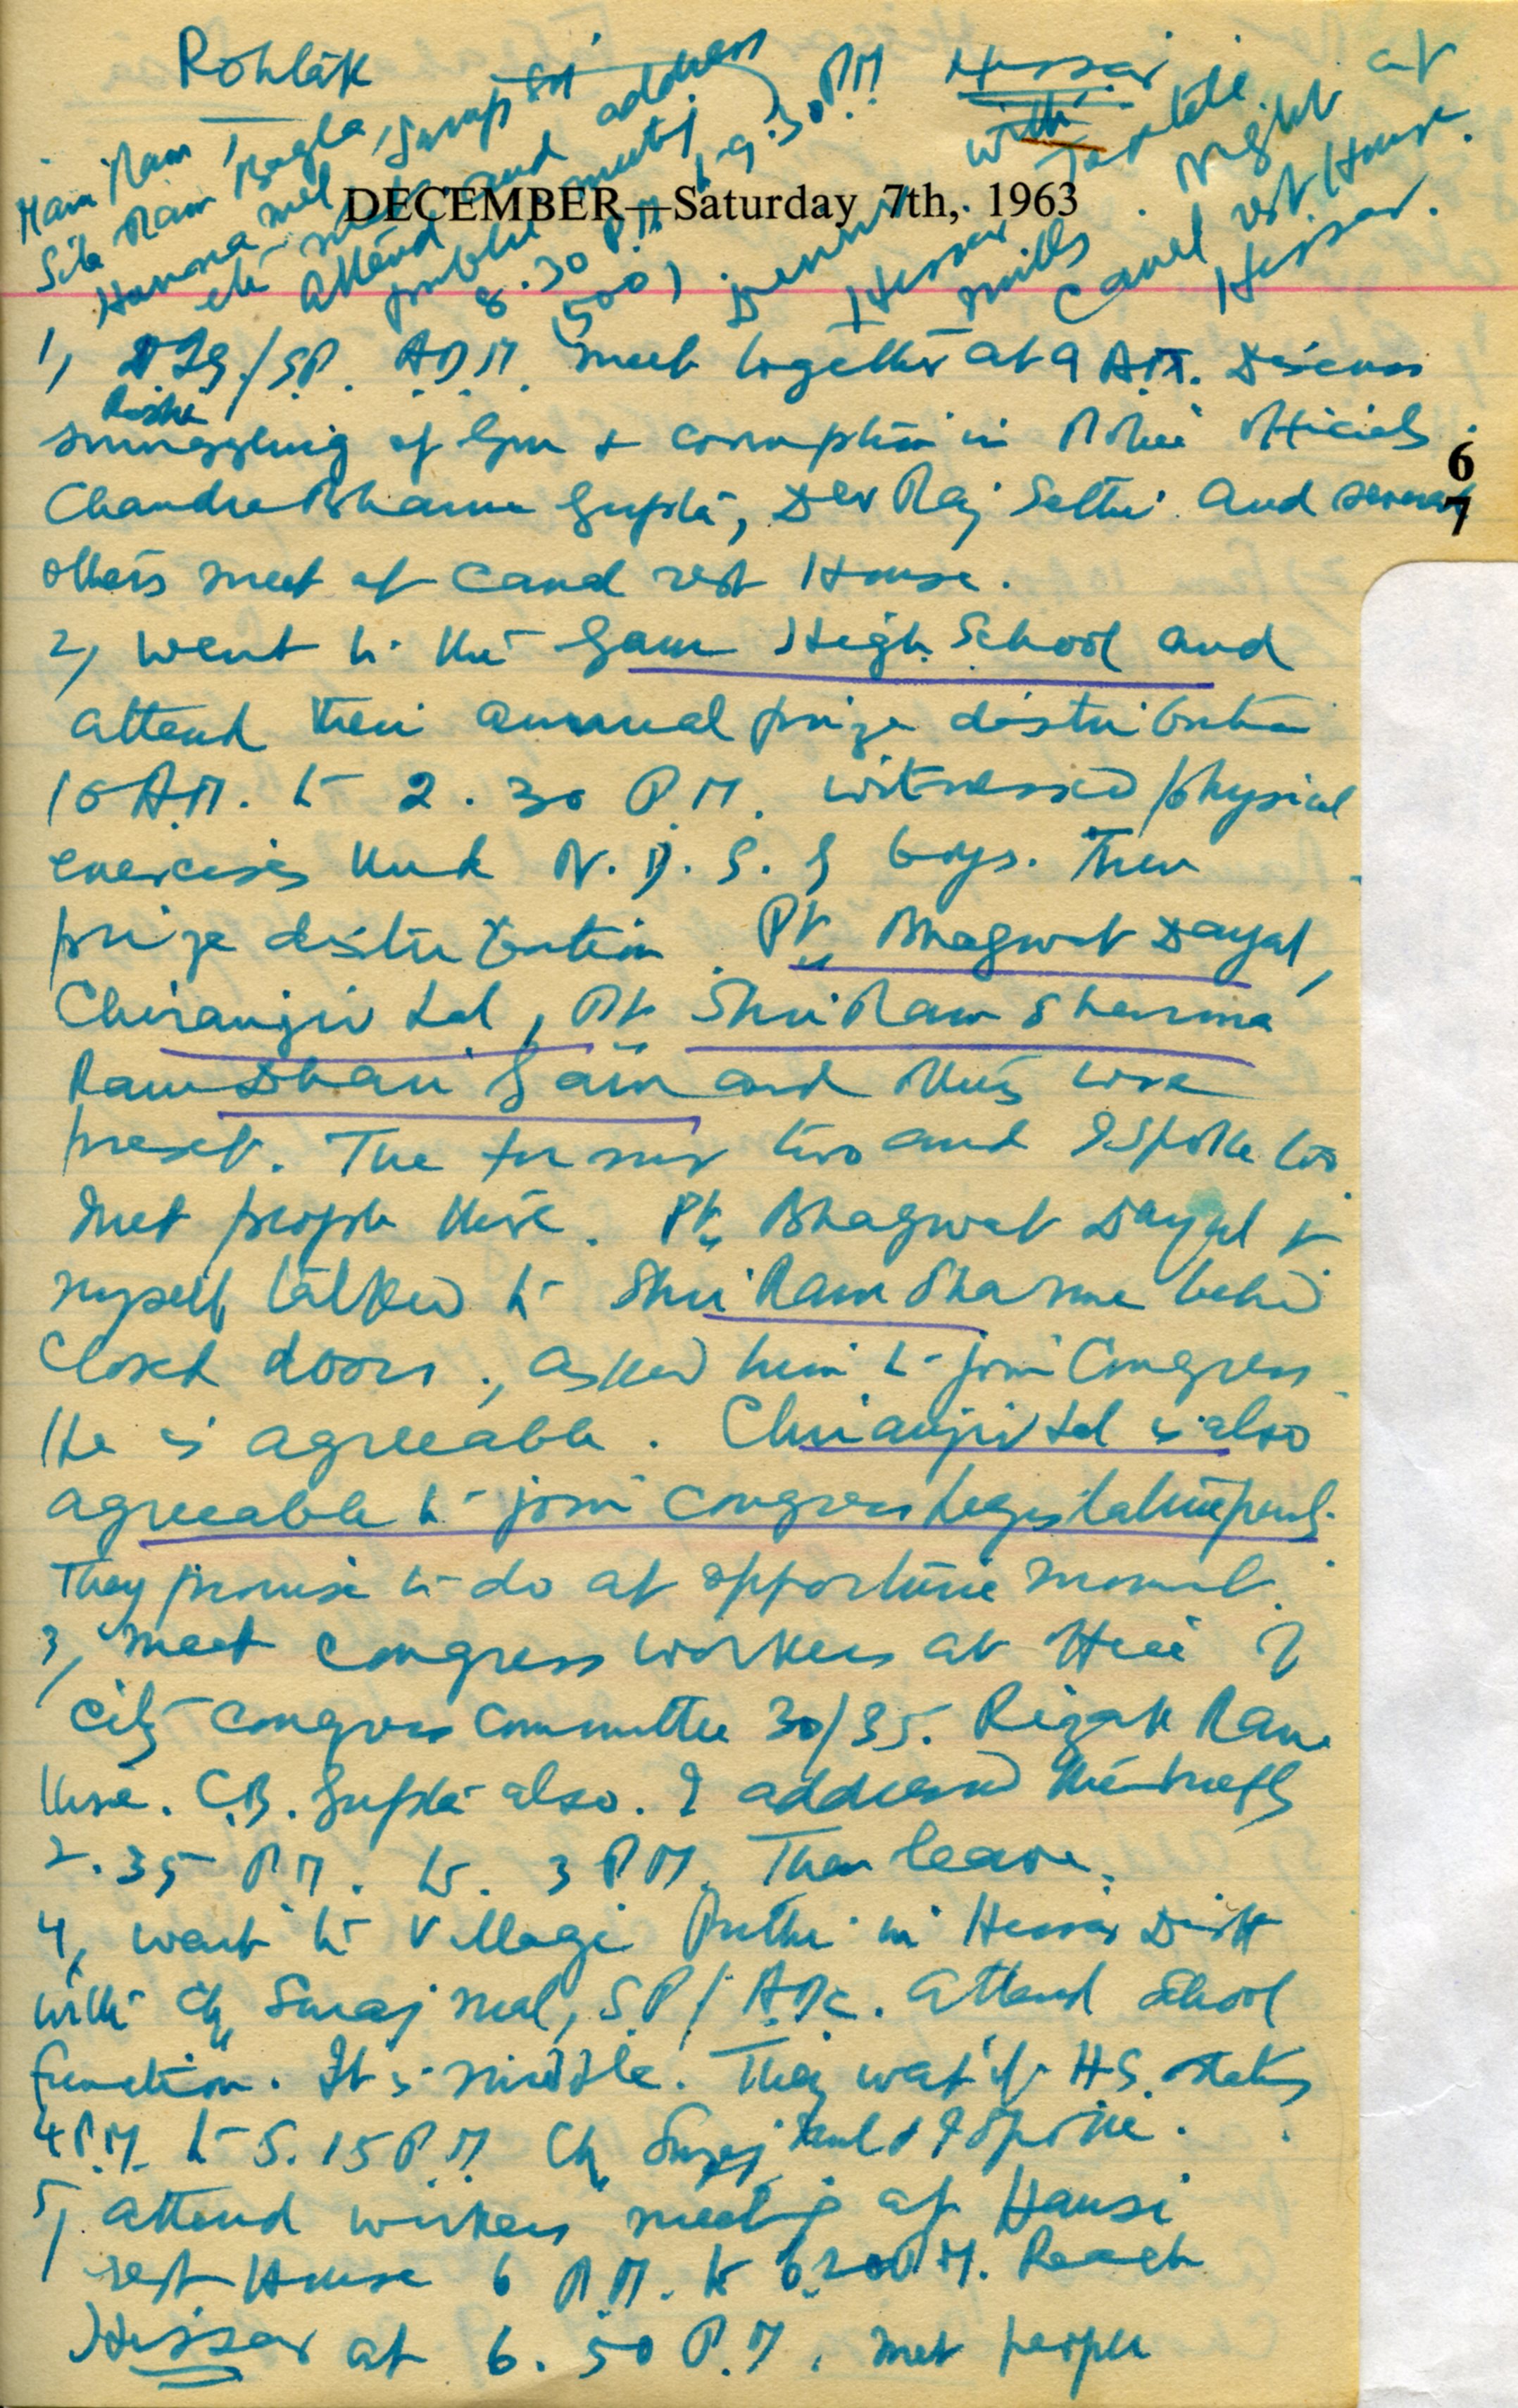 Rohtak
Hissar
DECEMBER—Saturday 7th, 1963
Mani Ram
Sita Ram Bagla, Sarup Sst
Hansraj mal
etc meet and address
Attend public meeting
8.30 P.M to 9.30 P.M
(500) Dinner with
Hissar Textile
mills. Night at
Canal rest House
Hissar.
1, DIG/SP. ADM. meet together at 9 A.M. Discuss
smuggling of Gur & corruption in Police Officials.
Chandra Bhann Gupta, Dev Raj Sethi and several
6
7
others meet at Canal rest House.
2, Went to the Gaur High School and
attend their annual prize distribution
10 A.M. to 2.30 P.M. witnessed physical
exercises and N.D.S. of boys. Then
prize distribution. Pt. Bhagwat Dayal,
Chiranjiv Lal, Pt Shri Ram Sharma
Ram Dhari Gaur and others were
present. The former two and I spoke too
met people there. Pt. Bhagwat Dayal &
myself talked to Shri Ram Sharma behind
Closed doors, asked him to join Congress
He is agreeable. Chiranjiv Lal is also
agreeable to join Congress Legislature party.
They promise to do at opportune moment.
3, meet Congress workers at Office of
City Congress Committee 30/35. Rizak Ram
there. C.B. Gupta also. I addressed the briefly
2.35 P.M. to 3 P.M. Then leave.
4, went to Village Putthi in Hissar Distt
with Ch Suraj mal, S.P/ A.D.C. Attend School
function. It is middle. They want it H.S. status
4 P.M. to 5.15 P.M Ch Suraj Mal & I spoke.
5, attend workers meeting at Hansi
rest House 6 P.M. to 6.20 P.M. Reach
Hissar at 6.50 P.M, met people